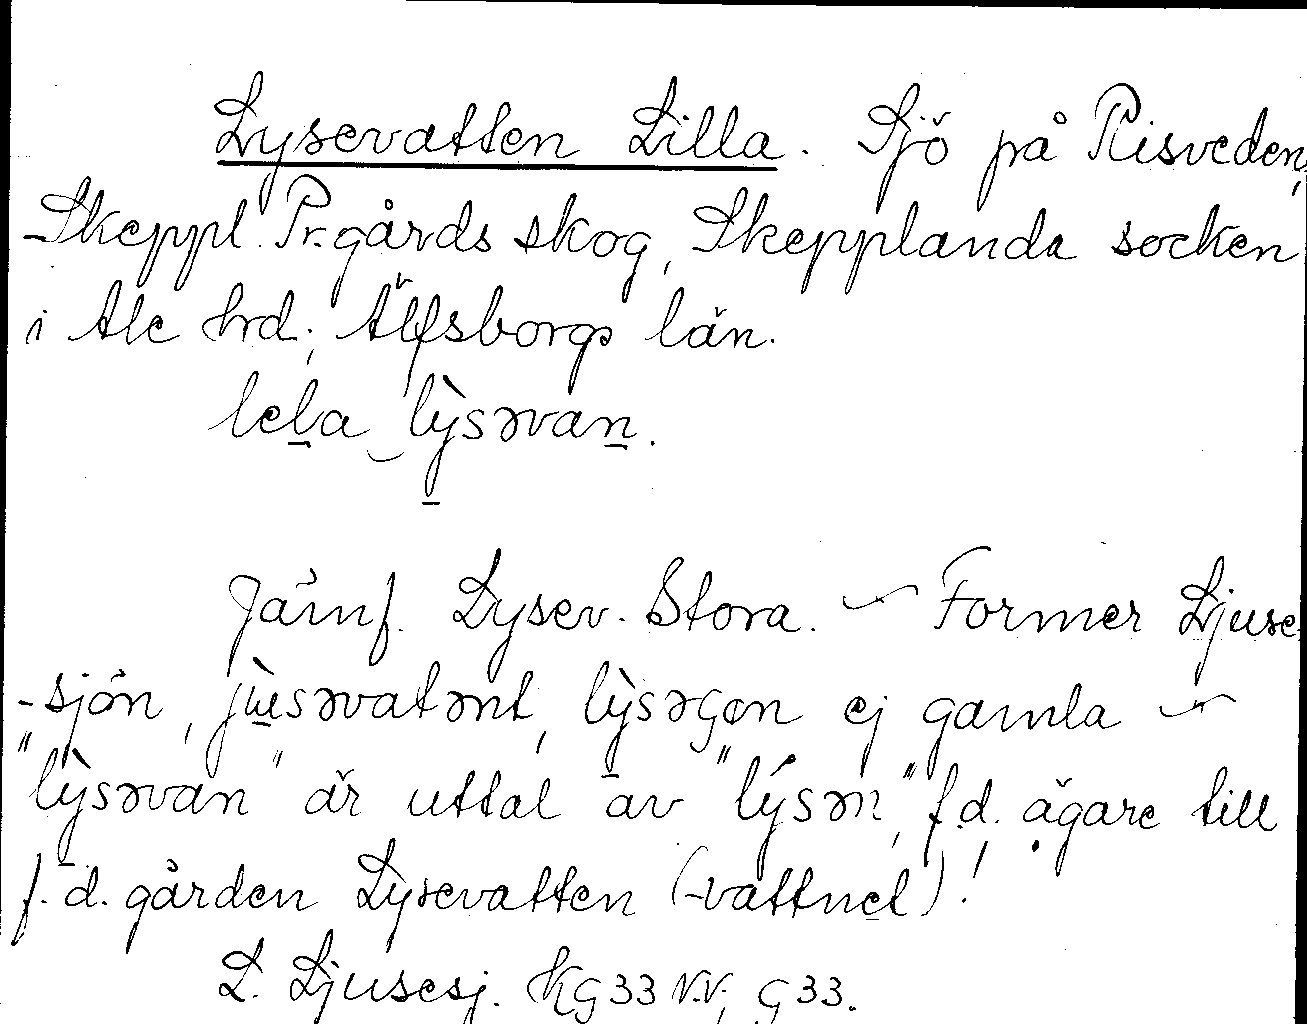 Lysevatten Lilla. Sjö på Risveden,
Skeppl. Pr.gårds skog, Skepplanda socken
i Ale hrd, Älfsborgs län.
lela lỳsəvan.
Jämf. Lysev. Stora. — Former Ljuse-
-sjön, jɯ̀səvatənt, lỳsəʂøn ej gamla —
"lỳsəvan" är uttal av "lýsən", f.d. ägare till
f.d. gården Lysevatten (-vattnet)!
L. Ljusesj. KG33 N.V., G33.